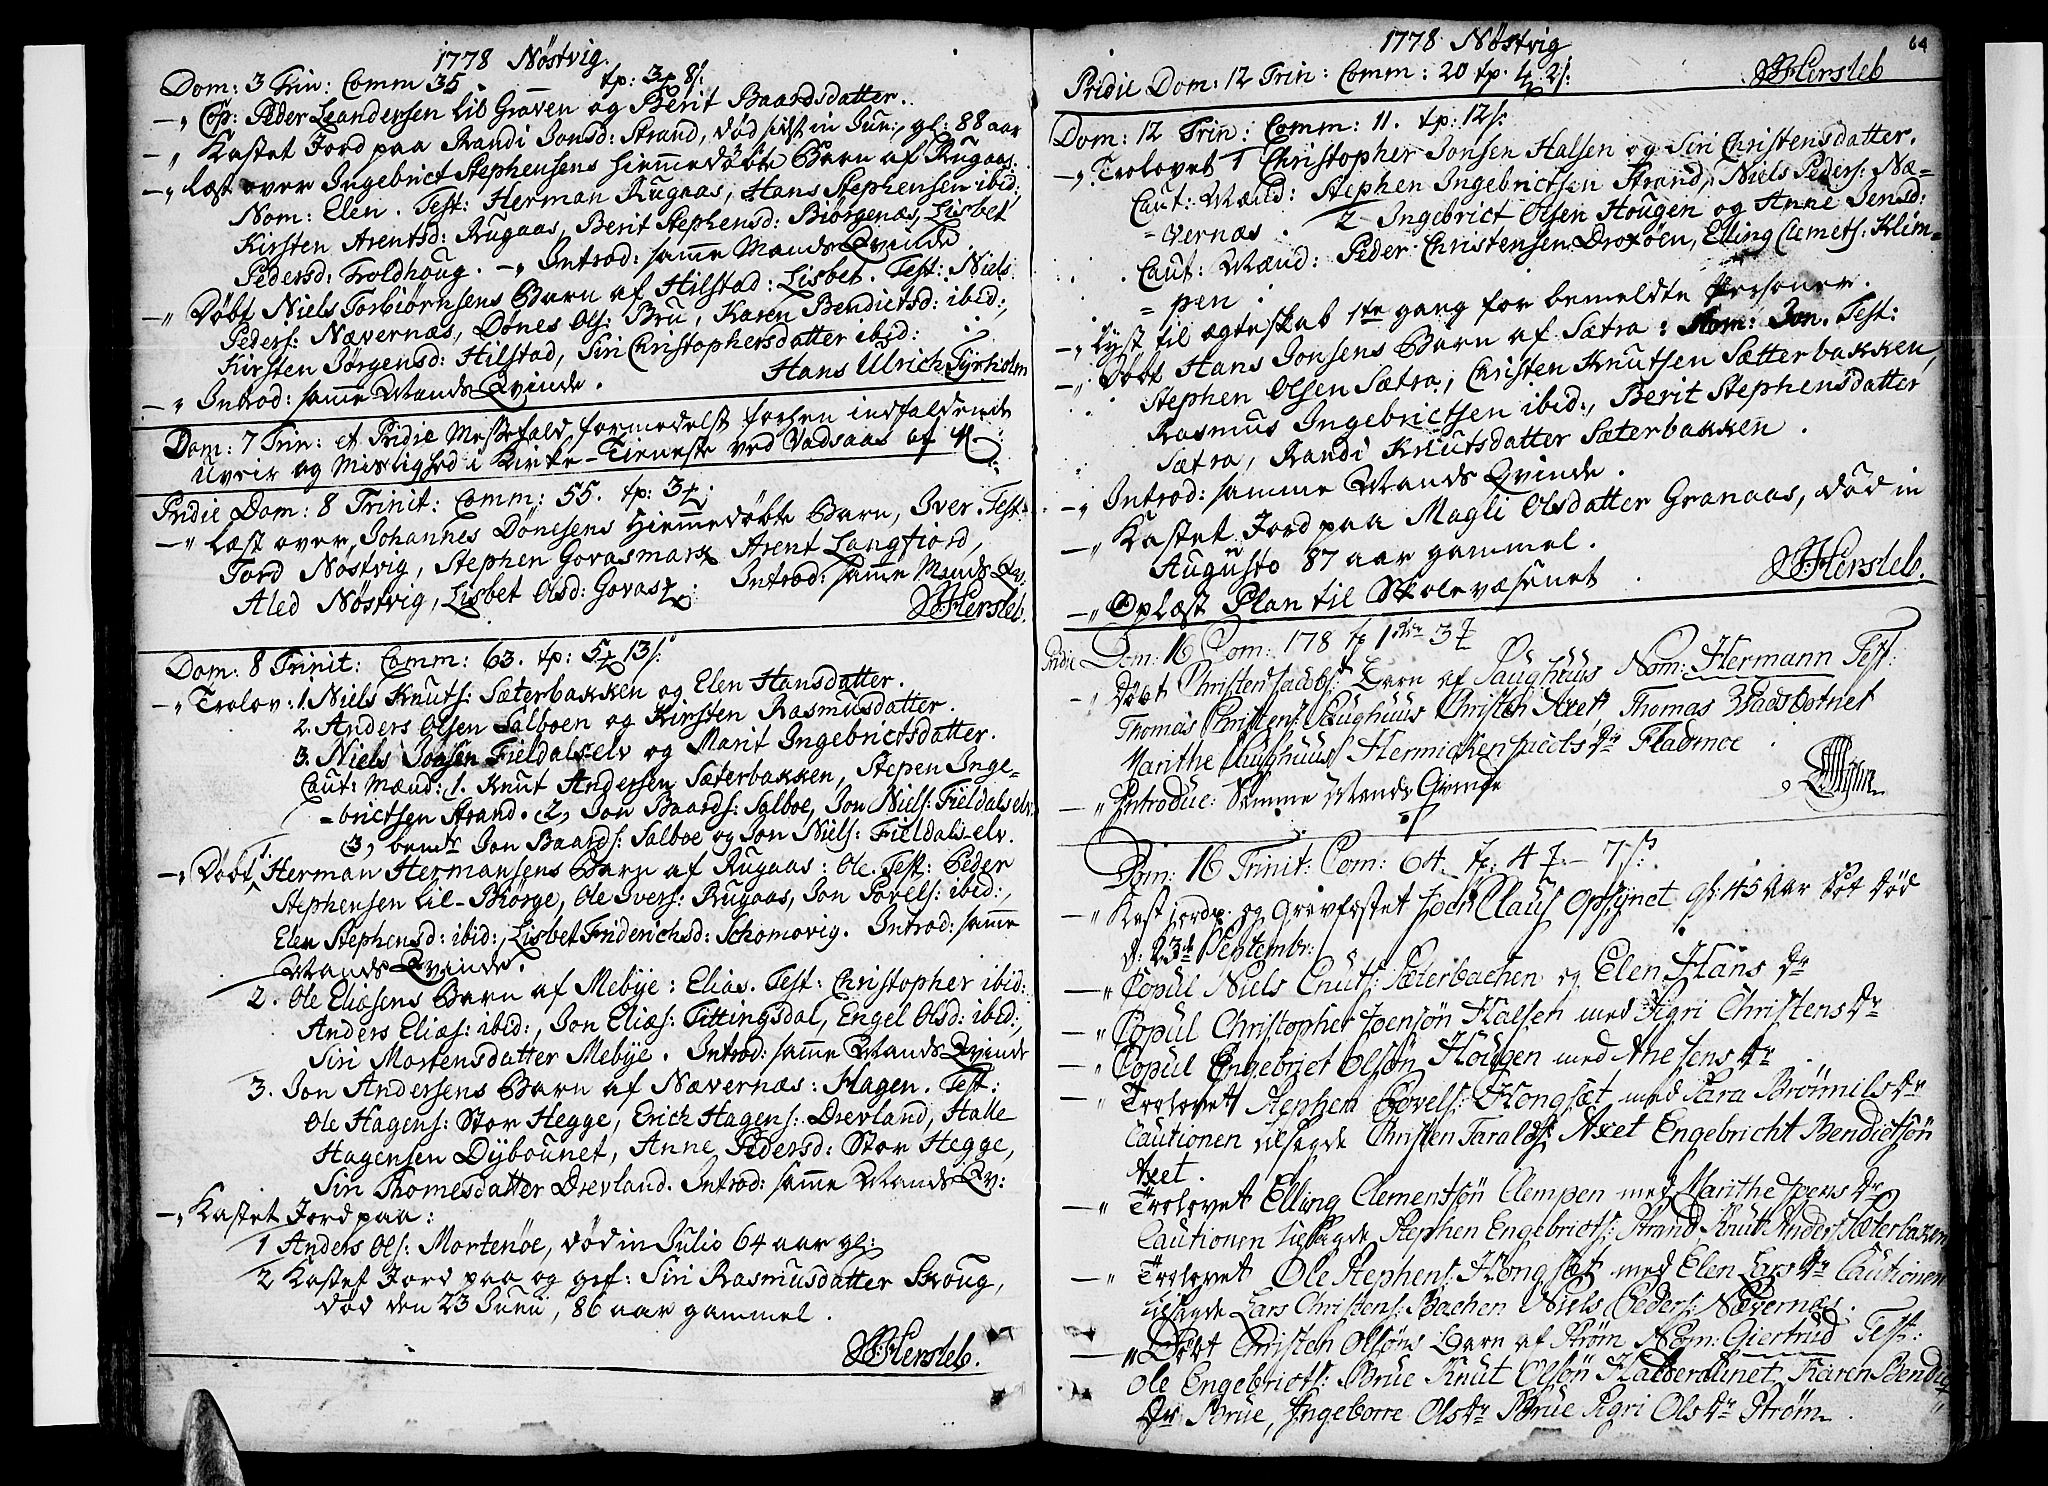 1778 Nøstvig.
Dom: 3 Trin: Comm 35. tp: 3 8/:
–„ Cop: Peder Leandersen lil Graven og Berit Baardsdatter.
–„ Kastet Jord paa Randi Jonsd: Strand, død sidst in Jun:, gl: 88 aar
–„ Læst over Ingebrict Stephensens hiemmedøbte Barn af Rugaas.
Nom: Elen. Test: Herman Rugaas, Hans Stephensen ibid:,
Kirsten Arentsd: Rugaas, Berit Stephensd: Biørgenæs, Lisbet
Pedersd: Troldhoug. –„ Introd: samme Mands Qvinde.
–„ Døbt Niels Torbiørnsens Barn af Hilstad: Lisbet. Test: Niels
Peders: Nævernæs, Dønes Ols: Bru, Karen Bendictsd: ibid:,
Kirsten Jørgensd: Hilstad, Siri Christophersdatter ibid:
–„ Introd: samme Mands Qvinde. Hans Ulrich Tyrholm
Dom: 7 Trin: et Pridie Messefald formedelst forhen indfaldende
Uveir og Mislighed i Kirke-Tieneste ved Vadsaas af
Pridie Dom: 8 Trinit: Comm: 55. tp: 3
–„ Læst over, Johannes Dønesens hiemmedøbte Barn, Iver. Test:
Tord Nøstvig, Stephen Govasmark Arent Langfiord,
Aled Nøstvig, Lisbet Olsd: Govas: Introd: samme Mands Qv:
Hersleb.
Dom: 8 Trinit: Comm: 63. tp: 5 13/:
–„ Trolov: 1. Niels Knuts: Sæterbakken og Elen Hansdatter.
2. Anders Olsen Salboen og Kirsten Rasmusdatter.
3. Niels Jonsen Fieldalselv og Marit Ingebrictsdatter.
Caut: Mænd: 1. Knut Andersen Sæterbakken, Stepen Inge=
=brictsen Strand. 2, Jon Baards: Salboe, Jon Niels: Fieldalselv
3, bemte Jon Baards: Salboe og Jon Niels: Fieldals-elv.
–„ Døbt, 1. Herman Hermansens Barn af Rugaas: Ole. Test: Peder
Stephensen Lil-Biørge, Ole Ivers: Rugaas, Jon Povels: ibid:,
Elen Stephensd: ibid:, Lisbet Friderichsd: Schomovig. Introd: samme
Mands Qvinde.
2. Ole Eliæsens Barn af Mebye: Elias. Test: Christopher ibid:
Anders Eliæs: ibid:, Jon Eliæs: Tittingsdal, Engel Olsd: ibid:,
Siri Mortensdatter Mebye. Introd: samme Mands Qvinde
3. Jon Andersens Barn af Nævernæs: Hagen. Test:
Ole Hagens: Stor Hegge, Erich Hagens: Drevland, Halle
Hagensen Dybounet, Anne Pedersd: Stor Hegge,
Siri Thomesdatter Drevland. Introd: samme Mands Qv:
–„ Kastet Jord paa:
1 Anders Ols: Mortenøe, død in Julio 64 aar gl:
2 Kastet Jord paa og gef: Siri Rasmusdatter Skoug,
død den 23 Junii, 86 aar gammel.
Hersleb.
64
1778 Nøstvig
Pridie Dom: 12 Trin: Comm: 20 tp. 4 2/: Hersleb
Dom: 12 Trin: Comm: 11. tp: 12/:
–„ Trolovet 1 Christopher Jonsen Halsen og Siri Christensdatter.
Caut: Mænd: Stephen Ingebrictsen Strand, Niels Peders: Næ=
=vernæs. 2 Ingebrict Olsen Hougen og Anne Jensd:
Caut: Mænd: Peder Christensen Droxøen, Elling Clemets: Klim=
=pen.
–„ Lyst til ægteskab 1ste gang for bemeldte Personer.
–„ Døbt Hans Jonsens Barn af Sætra: Nom: Jon. Test:
Stephen Olsen Sætra, Christen Knutsen Sætterbakken,
Rasmus Ingebrictsen ibid:, Berit Stephensdatter
Sætra, Randi Knutsdatter Sæterbakken.
–„ Introd: samme Mands Qvinde.
–„ Kastet Jord paa Magli Olsdatter Granaas, død in
Augusto 87 aar gammel.
–„ Oplæst Plan til Skolevæsenet. Hersleb.
Pridie Dom: 16 Com: 178 tp 1 3
–„ Døbt Christen Jacobs: Barn af Saughuus Nom: Hermann Test:
Thomas Christens: Saughuus Christen Axet Thomas Vadsbotnet
Marithe Saughuus Hermichen Jacobs Dr Fladmoe.
–„ Introduc: Samme Mands Qvinde
Dom: 16 Trinit: Com: 64. tp: 4 – 7 /:
–„ Kast jordp: og Gravfæstet Joen Claus Opsynet gl: 45 Aar Død
d: 23de Septembr:
–„ Copul Niels Cnuts: Sæterbachen og Elen Hans Dr
–„ Copul Christopher Joensøn Halsen med Sigri Christens Dr
–„ Copul Engebrict Olsøn Hougen med Ane Jens Dr.
–„ Trolovet Stephen Povels: Hongsæt med Sara Brømils Dr
Cautionen tilsagde Christen Taralds: Axet Engebricht Bendictsøn
Axet.
–„ Trolovet Elling Clementsøn Clempen med Marithe Joens Dr
Cautionen tilsagde Stephen Engebricts: Strand Knut Anders: Sæterbaken
–„ Trolovet Ole Stephens: Hongsæt med Elen Lars Dr Cautionen
tilsagde Lars Christens: Bachen Niels Peders: Nævernæs.
–„ Døbt Christen Olsøns Barn af Strøm Nom: Giertrud Test:
Ole Engebricts: Brue Knut Olsøn Halderaunet, Karen Bendic
Dr Brue, Ingeborre Ols Dr Brue Sigri Ols Dr Strøm.